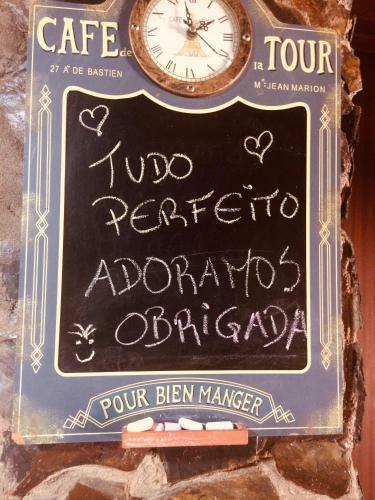 CAFE de la TOUR
27 Aᵉ DE BASTIEN
Mᵉ JEAN MARION
TUDO
PERFEITO
ADORAMOS
OBRIGADA
POUR BIEN MANGER